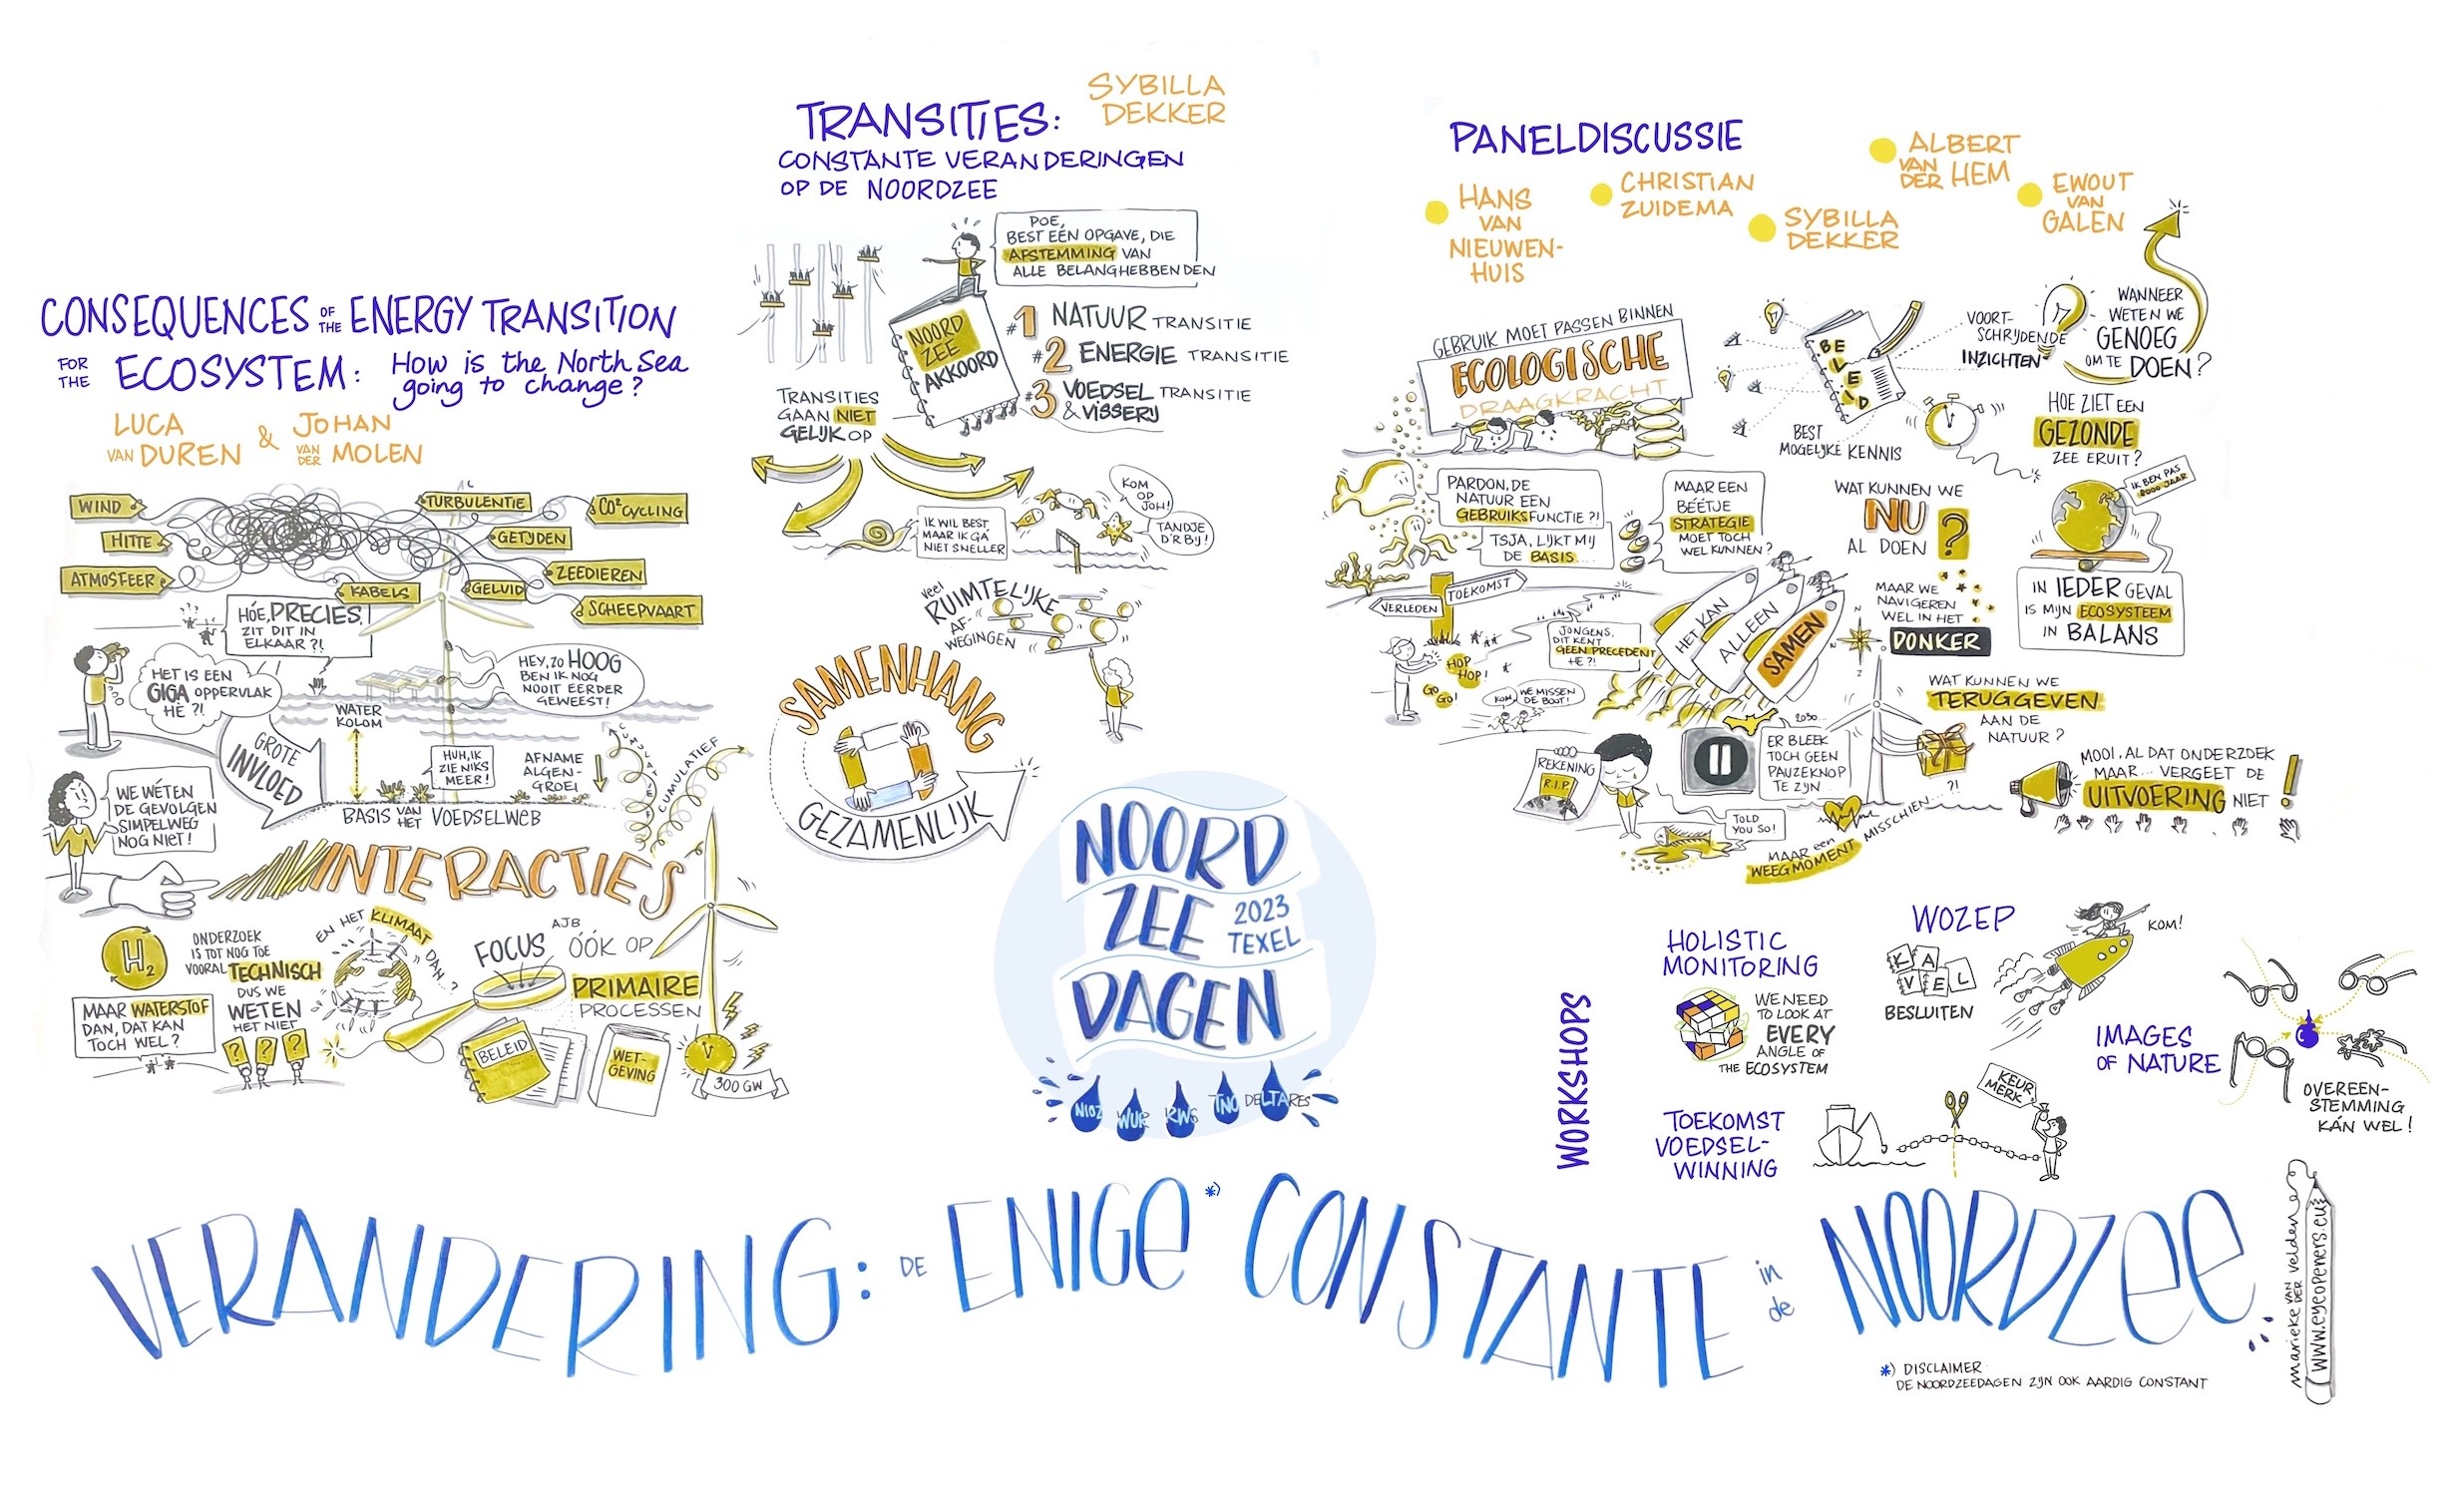 CONSEQUENCES OF THE ENERGY TRANSITION
FOR THE ECOSYSTEM: How is the North Sea
going to change?
LUCA VAN DUREN & JOHAN VAN DER MOLEN
WIND
HITTE
ATMOSFEER
TURBULENTIE
CO² CYCLING
GETIJDEN
ZEEDIEREN
KABELS
GELUID
SCHEEPVAART
HÓE, PRECIES,
ZIT DIT IN
ELKAAR?!
HET IS EEN
GIGA OPPERVLAK
HÉ?!
HEY, ZO HOOG
BEN IK NOG
NOOIT EERDER
GEWEEST!
WATER
KOLOM
GROTE
INVLOED
HUH, IK
ZIE NIKS
MEER!
AFNAME
ALGEN-
GROEI
CUMULATIEF
CUMULATIEF
BASIS VAN HET VOEDSELWEB
WE WÉTEN
DE GEVOLGEN
SIMPELWEG
NOG NIET!
INTERACTIES
H2
MAAR WATERSTOF
DAN, DAT KAN
TOCH WEL?
ONDERZOEK
IS TOT NOG TOE
VOORAL TECHNISCH
DUS WE
WETEN
HET NIET
? ? ?
EN HET KLIMAAT DAN?
AJB
FOCUS ÓÓK OP
PRIMAIRE
PROCESSEN
BELEID
WET-
GEVING
300 GW
TRANSITIES:
SYBILLA
DEKKER
CONSTANTE VERANDERINGEN
OP DE NOORDZEE
POE,
BEST EÉN OPGAVE, DIE
AFSTEMMING VAN
ALLE BELANGHEBBENDEN
NOORD
ZEE
AKKOORD
#1 NATUUR TRANSITIE
#2 ENERGIE TRANSITIE
#3 VOEDSEL TRANSITIE
& VISSERIJ
TRANSITIES
GAAN NIET
GELIJK OP
IK WIL BEST
MAAR IK GA
NIET SNELLER
KOM
OP
JOH!
TANDJE
D'R BIJ!
VEEL
RUIMTELIJKE
AF-
WEGINGEN
SAMENHANG
GEZAMENLIJK
NOORD
ZEE
2023
TEXEL
DAGEN
NIOZ WUR RWS TNO DELTARES
PANELDISCUSSIE
HANS
VAN
NIEUWEN-
HUIS
CHRISTIAN
ZUIDEMA
SYBILLA
DEKKER
ALBERT
VAN DER HEM
EWOUT
VAN
GALEN
GEBRUIK MOET PASSEN BINNEN
ECOLOGISCHE
DRAAGKRACHT
BELEID
VOORT-
SCHRIJDENDE
INZICHTEN
BEST
MOGELIJKE KENNIS
WANNEER
WETEN WE
GENOEG
OM TE DOEN?
HOE ZIET EEN
GEZONDE
ZEE ERUIT?
PARDON, DE
NATUUR EEN
GEBRUIKSFUNCTIE?!
TSJA, LIJKT MIJ
DE BASIS....
MAAR EEN
BÉÉTJE
STRATEGIE
MOET TOCH
WEL KUNNEN?
WAT KUNNEN WE
NU
AL DOEN ?
IK BEN PAS
2000 JAAR
IN IEDER GEVAL
IS MIJN ECOSYSTEEM
IN BALANS
VERLEDEN
TOEKOMST
HOP
HOP!
GO
GO!
JONGENS,
DIT KENT
GEEN PRECEDENT
HE?!
KOM,
WE MISSEN
DE BOOT!
HET KAN
ALLEEN
SAMEN
MAAR WE
NAVIGEREN
WEL IN HET
DONKER
N
Z
WAT KUNNEN WE
TERUGGEVEN
AAN DE
NATUUR?
REKENING
R.I.P.
2030...
ER BLEEK
TOCH GEEN
PAUZEKNOP
TE ZIJN...
TOLD
YOU SO!
MAAR een
WEEGMOMENT
MISSCHIEN...?!
MOOI, AL DAT ONDERZOEK
MAAR... VERGEET DE
UITVOERING NIET !
WORKSHOPS
HOLISTIC
MONITORING
WE NEED
TO LOOK AT
EVERY
ANGLE OF
THE ECOSYSTEM
WOZEP
KAVEL
BESLUITEN
KOM!
IMAGES
OF NATURE
OVEREEN-
STEMMING
KÁN WEL!
TOEKOMST
VOEDSEL-
WINNING
KEUR
MERK
VERANDERING: DE ENIGE *) CONSTANTE in de NOORDZEE
*) DISCLAIMER
DE NOORDZEEDAGEN ZIJN OOK AARDIG CONSTANT
marieke VAN DER velden
www.eyeopeners.eu